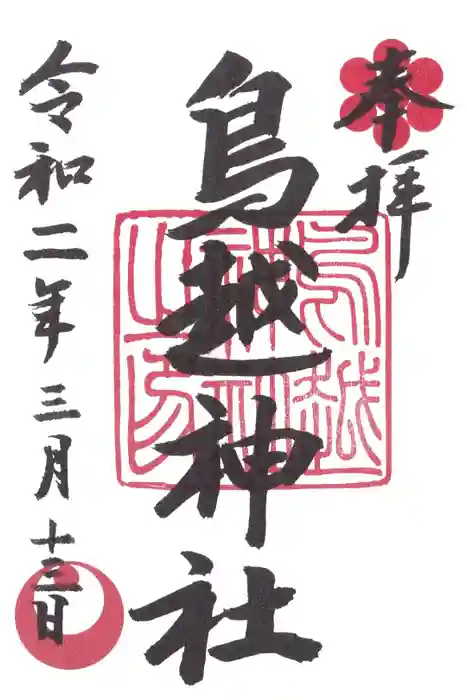 奉拝
鳥越神社
令和二年三月十三日